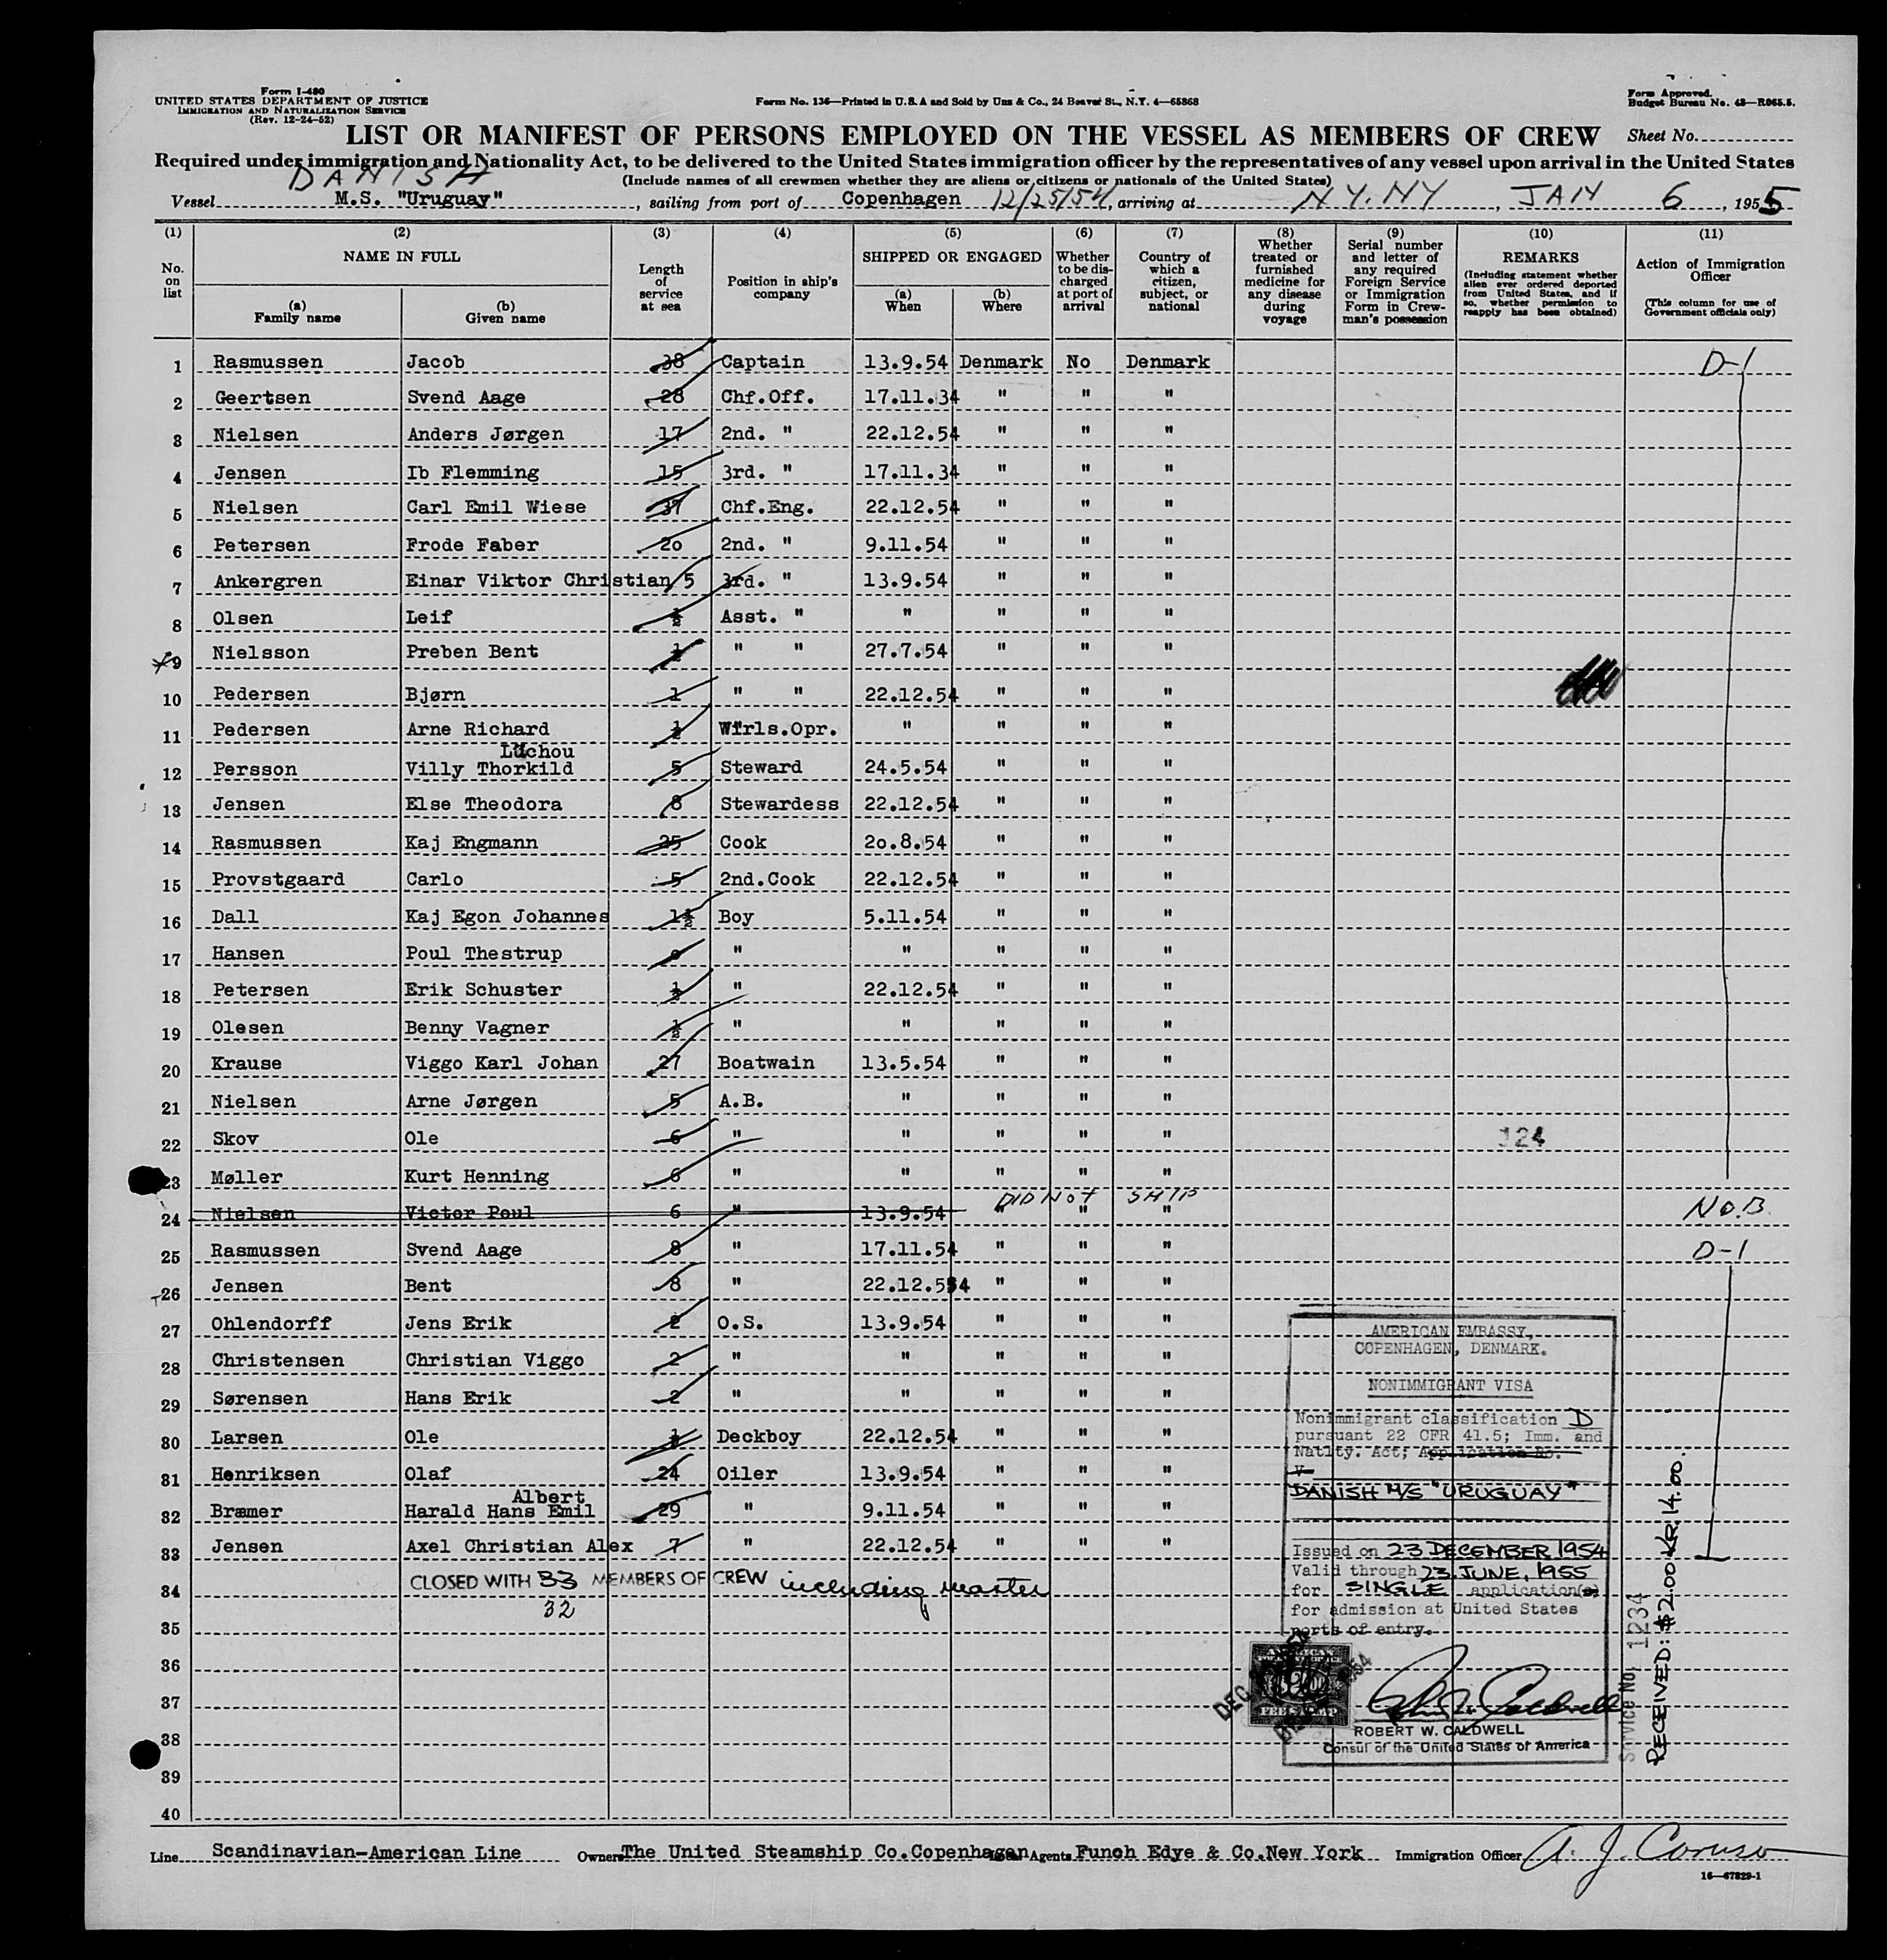 Form I-480
UNITED STATES DEPARTMENT OF JUSTICE
IMMIGRATION AND NATURALIZATION SERVICE
(Rev. 12-24-52)
Form No. 136—Printed in U.S.A and Sold by Unz & Co., 24 Beaver St., N.Y. 4—65868
Form Approved.
Budget Bureau No. 43—R065.5.
LIST OR MANIFEST OF PERSONS EMPLOYED ON THE VESSEL AS MEMBERS OF CREW Sheet No.
Required under immigration and Nationality Act, to be delivered to the United States immigration officer by the representatives of any vessel upon arrival in the United States
DANISH
(Include names of all crewmen whether they are aliens or citizens or nationals of the United States)
Vessel M.S. "Uruguay", sailing from port of Copenhagen 12/25/54, arriving at N.Y. NY, JAN 6, 1955
(1) (2) (3) (4) (5) (6) (7) (8) (9) (10) (11)
No. on list
NAME IN FULL
(a) Family name
(b) Given name
Length of service at sea
Position in ship's company
SHIPPED OR ENGAGED
(a) When
(b) Where
Whether to be discharged at port of arrival
Country of which a citizen, subject, or national
Whether treated or furnished medicine for any disease during voyage
Serial number and letter of any required Foreign Service or Immigration Form in Crewman's possession
REMARKS
(Including statement whether alien ever ordered deported from United States, and if so, whether permission to reapply has been obtained)
Action of Immigration Officer
(This column for use of Government officials only)
1 Rasmussen Jacob 38 Captain 13.9.54 Denmark No Denmark D-1
2 Geertsen Svend Aage 28 Chf.Off. 17.11.34 " " "
3 Nielsen Anders Jørgen 17 2nd. " 22.12.54 " " "
4 Jensen Ib Flemming 15 3rd. " 17.11.34 " " "
5 Nielsen Carl Emil Wiese 37 Chf.Eng. 22.12.54 " " "
6 Petersen Frode Faber 2o 2nd. " 9.11.54 " " "
7 Ankergren Einar Viktor Christian 5 3rd. " 13.9.54 " " "
8 Olsen Leif ½ Asst. " " " " "
9 Nielsson Preben Bent ½ " " 27.7.54 " " "
10 Pedersen Bjørn 1 " " 22.12.54 " " "
11 Pedersen Arne Richard ½ Wirls.Opr. " " " "
Lüchou
12 Persson Villy Thorkild 5 Steward 24.5.54 " " "
13 Jensen Else Theodora 8 Stewardess 22.12.54 " " "
14 Rasmussen Kaj Engmann 25 Cook 2o.8.54 " " "
15 Provstgaard Carlo 5 2nd.Cook 22.12.54 " " "
16 Dall Kaj Egon Johannes 1½ Boy 5.11.54 " " "
17 Hansen Poul Thestrup " " " " "
18 Petersen Erik Schuster ½ " 22.12.54 " " "
19 Olesen Benny Vagner ½ " " " " "
20 Krause Viggo Karl Johan 27 Boatwain 13.5.54 " " "
21 Nielsen Arne Jørgen 5 A.B. " " " "
22 Skov Ole 6 " " " " " 124
23 Møller Kurt Henning 6 " " " " "
DID NOT SHIP
24 Nielsen Victor Poul 6 " 13.9.54 " " No.B.
25 Rasmussen Svend Aage 8 " 17.11.54 " " " D-1
26 Jensen Bent 8 " 22.12.554 " " "
27 Ohlendorff Jens Erik 2 O.S. 13.9.54 " " "
28 Christensen Christian Viggo 2 " " " " "
29 Sørensen Hans Erik 2 " " " " "
30 Larsen Ole ½ Deckboy 22.12.54 " " "
31 Henriksen Olaf 24 Oiler 13.9.54 " " "
Albert
32 Bræmer Harald Hans Emil 29 " 9.11.54 " " "
33 Jensen Axel Christian Alex 7 " 22.12.54 " " "
34 CLOSED WITH 33 MEMBERS OF CREW including master
32
35
36
37
38
39
40
AMERICAN EMBASSY,
COPENHAGEN, DENMARK.
NONIMMIGRANT VISA
Nonimmigrant classification D
pursuant 22 CFR 41.5; Imm. and
Natlty. Act; Application No.
V-
DANISH M/S "URUGUAY"
Issued on 23 DECEMBER 1954
Valid through 23 JUNE, 1955
for SINGLE application(s)
for admission at United States
ports of entry.
ROBERT W. CALDWELL
Consul of the United States of America
Service No. 1234
RECEIVED: $2.00 KR. 14.00.
Line Scandinavian-American Line Owners The United Steamship Co.Copenhagen Agents Funch Edye & Co.New York Immigration Officer A. J. Caruso
16—67829-1